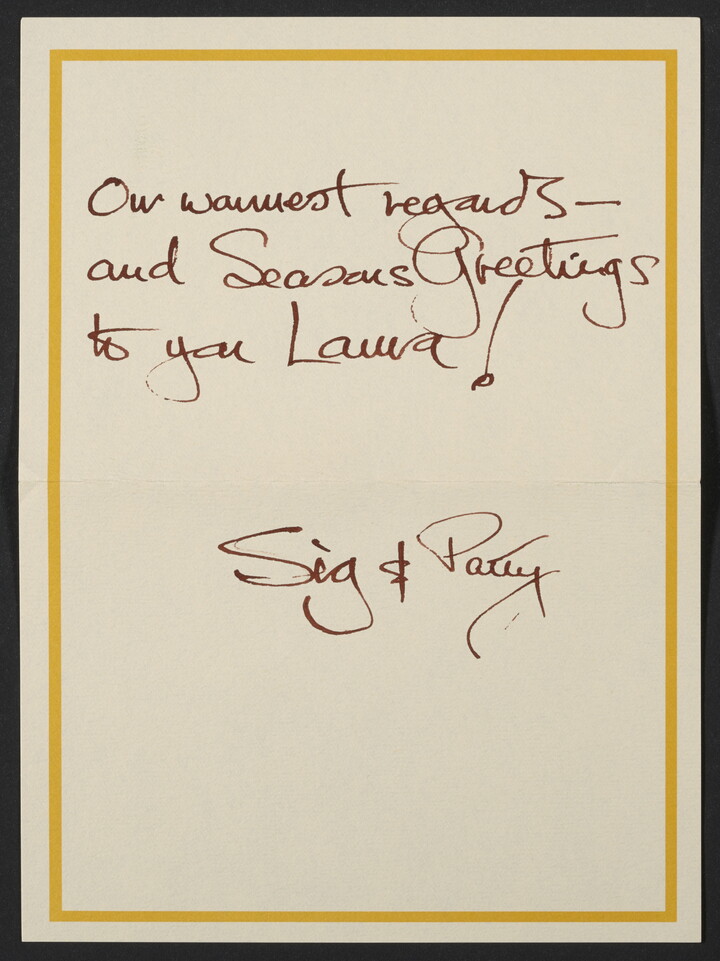 Our warmest regards—
and Seasons Greetings
to you Laura!
Sig & Patty